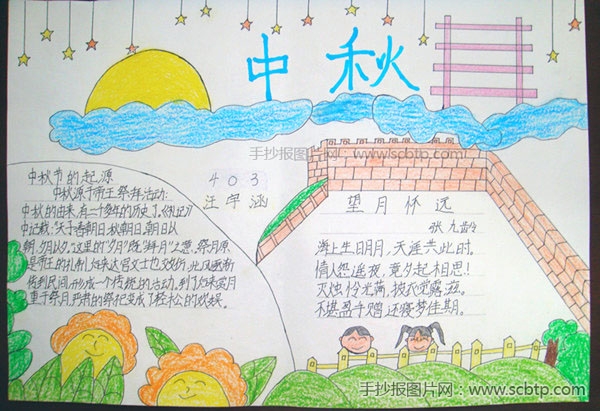 中秋
手抄报图片网：www.scbtp.com
中秋节的起源
中秋源于帝王祭拜活动:
中秋的由来,有一
的历史了。《礼记》
中记载:"天子春朝日,秋朝日,朝日以
朝,夕月以夕。"这里的"夕月"
之意,祭月原
是帝王的礼制,
此风逐渐
传到民间,形成一个传统的活动,到了
赏月
重于祭月,严肃的祭祀变成了轻松的欢娱。
403
汪宇涵
望月怀远
张九龄
海上生明月，天涯共此时。
情人怨遥夜，竟夕起相思！
灭烛怜光满，披衣觉露滋。
不堪盈手赠 还寝梦佳期。
手抄报图片网：www.scbtp.com